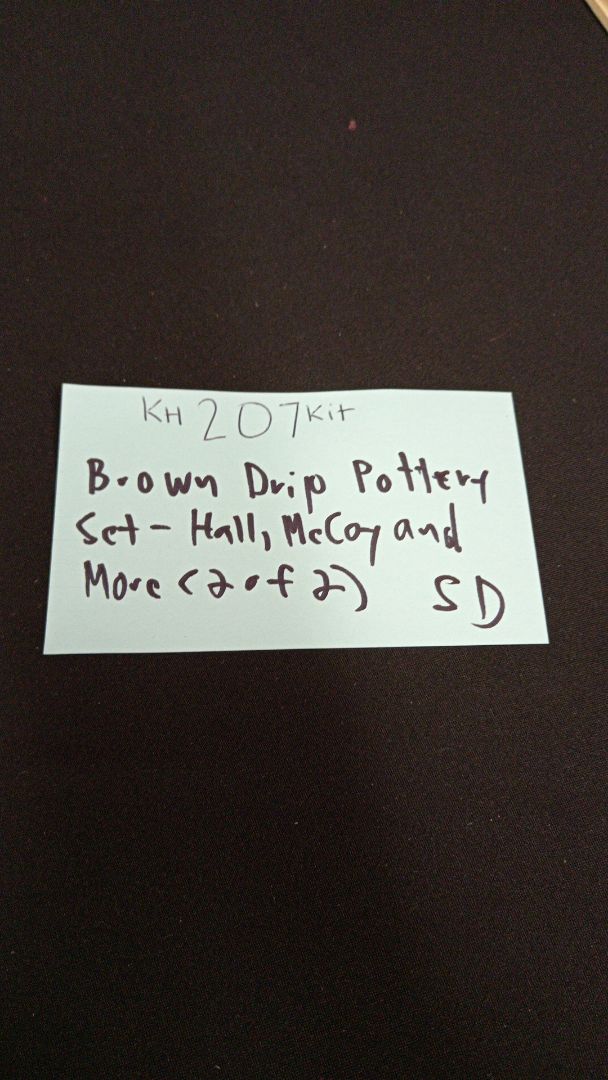 KH 207 Kit
Brown Drip Pottery
Set - Hall, McCoy and
More (2 of 2) SD